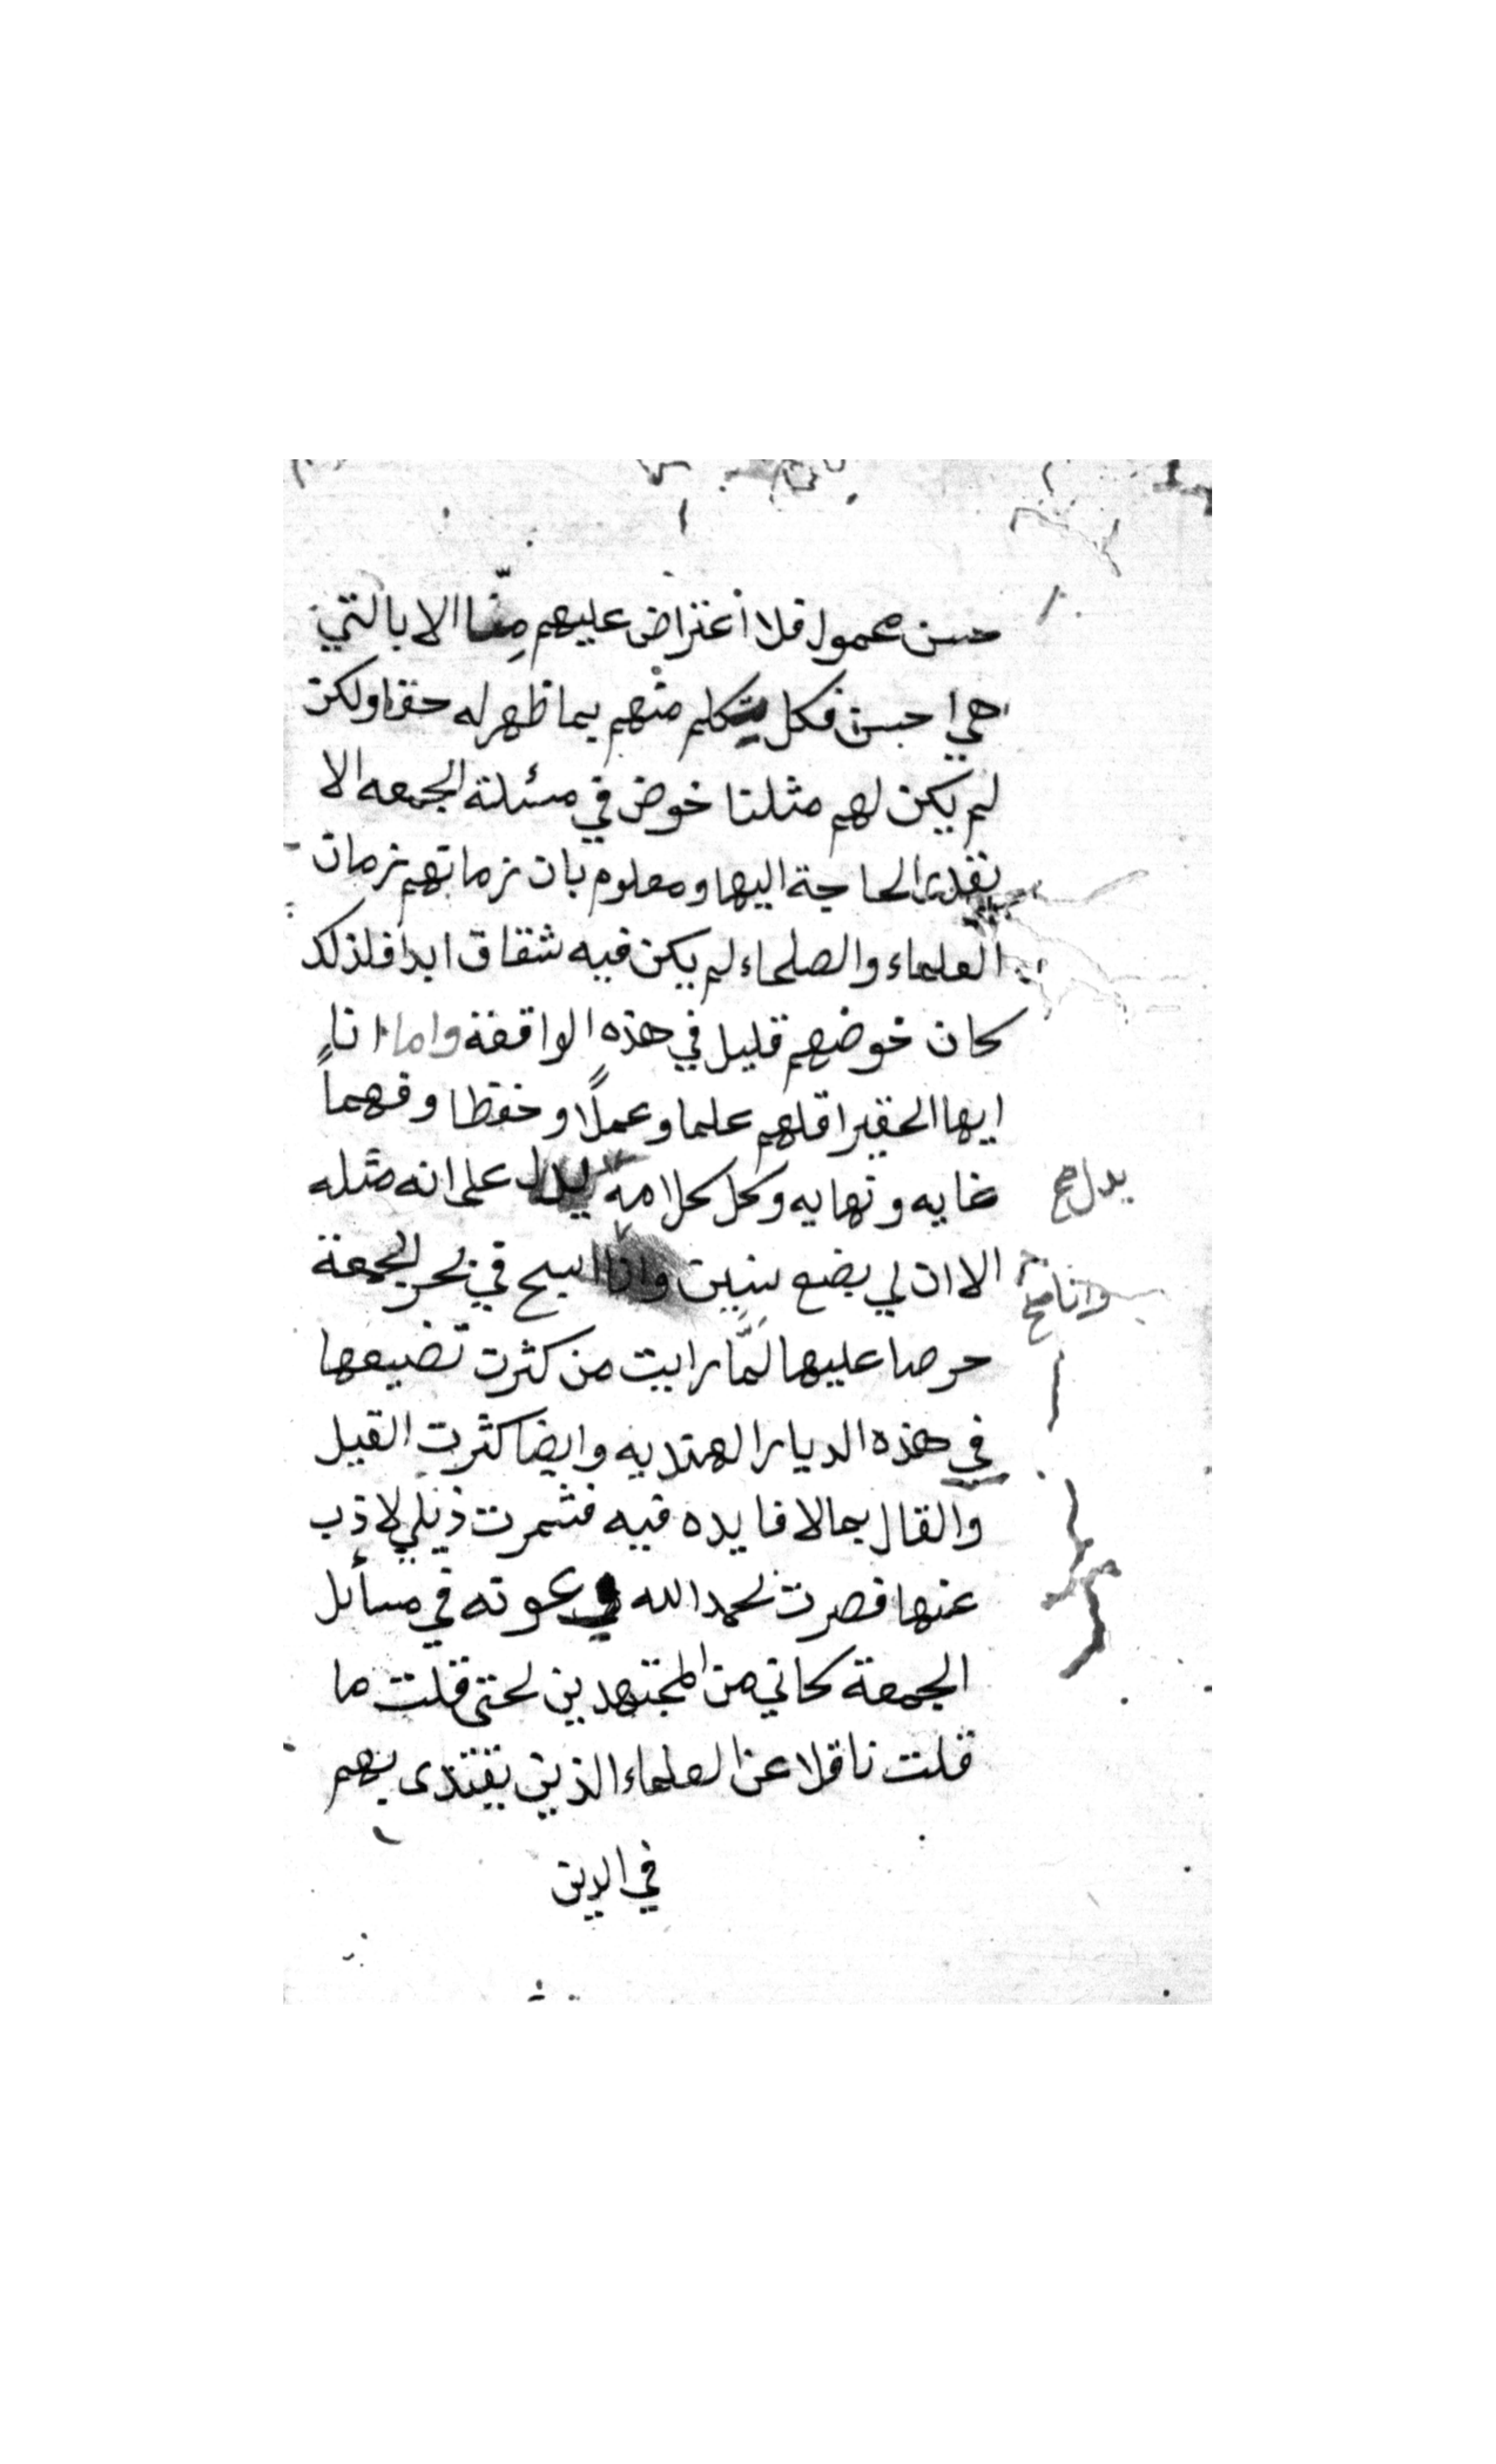 حسن محمول فلا أعتراض عليهم مِنّا الا بالتي
هي احسن فكل يتكلم منهم بما ظهر له حقا ولكن
لم يكن لهم مثلنا خوض في مسئلة الجمعه الا
بقدر الحاجة اليها ومعلوم بان زمانهم زمان
العلماء والصلحاء لم يكن فيه شقاق ابدا فلذلك
كان خوضهم قليل في هذه الواقعة واما انا
ايها الحقير اقلهم علما وعملًا وحفظا وفهماً
غايه ونهايه وكل كلامه يدل على انه مثله
يدل صح
الا ان لي بضع سنين وانا اسبح في بحر الجمعة
وانا صح
حرصا عليها لَمَّا رايت من كثرت تضيعها
في هذه الديار الهنديه وايضا كثرت القيل
والقال بما لا فايده فيه فشمرت ذيلي لاذب
عنها فصرت بحمد الله وعونه في مسأىل
الجمعة كاني من المجتهدين لحتى قلت ما
قلت ناقلا عن العلماء الذين يقتدى بهم
في الدين